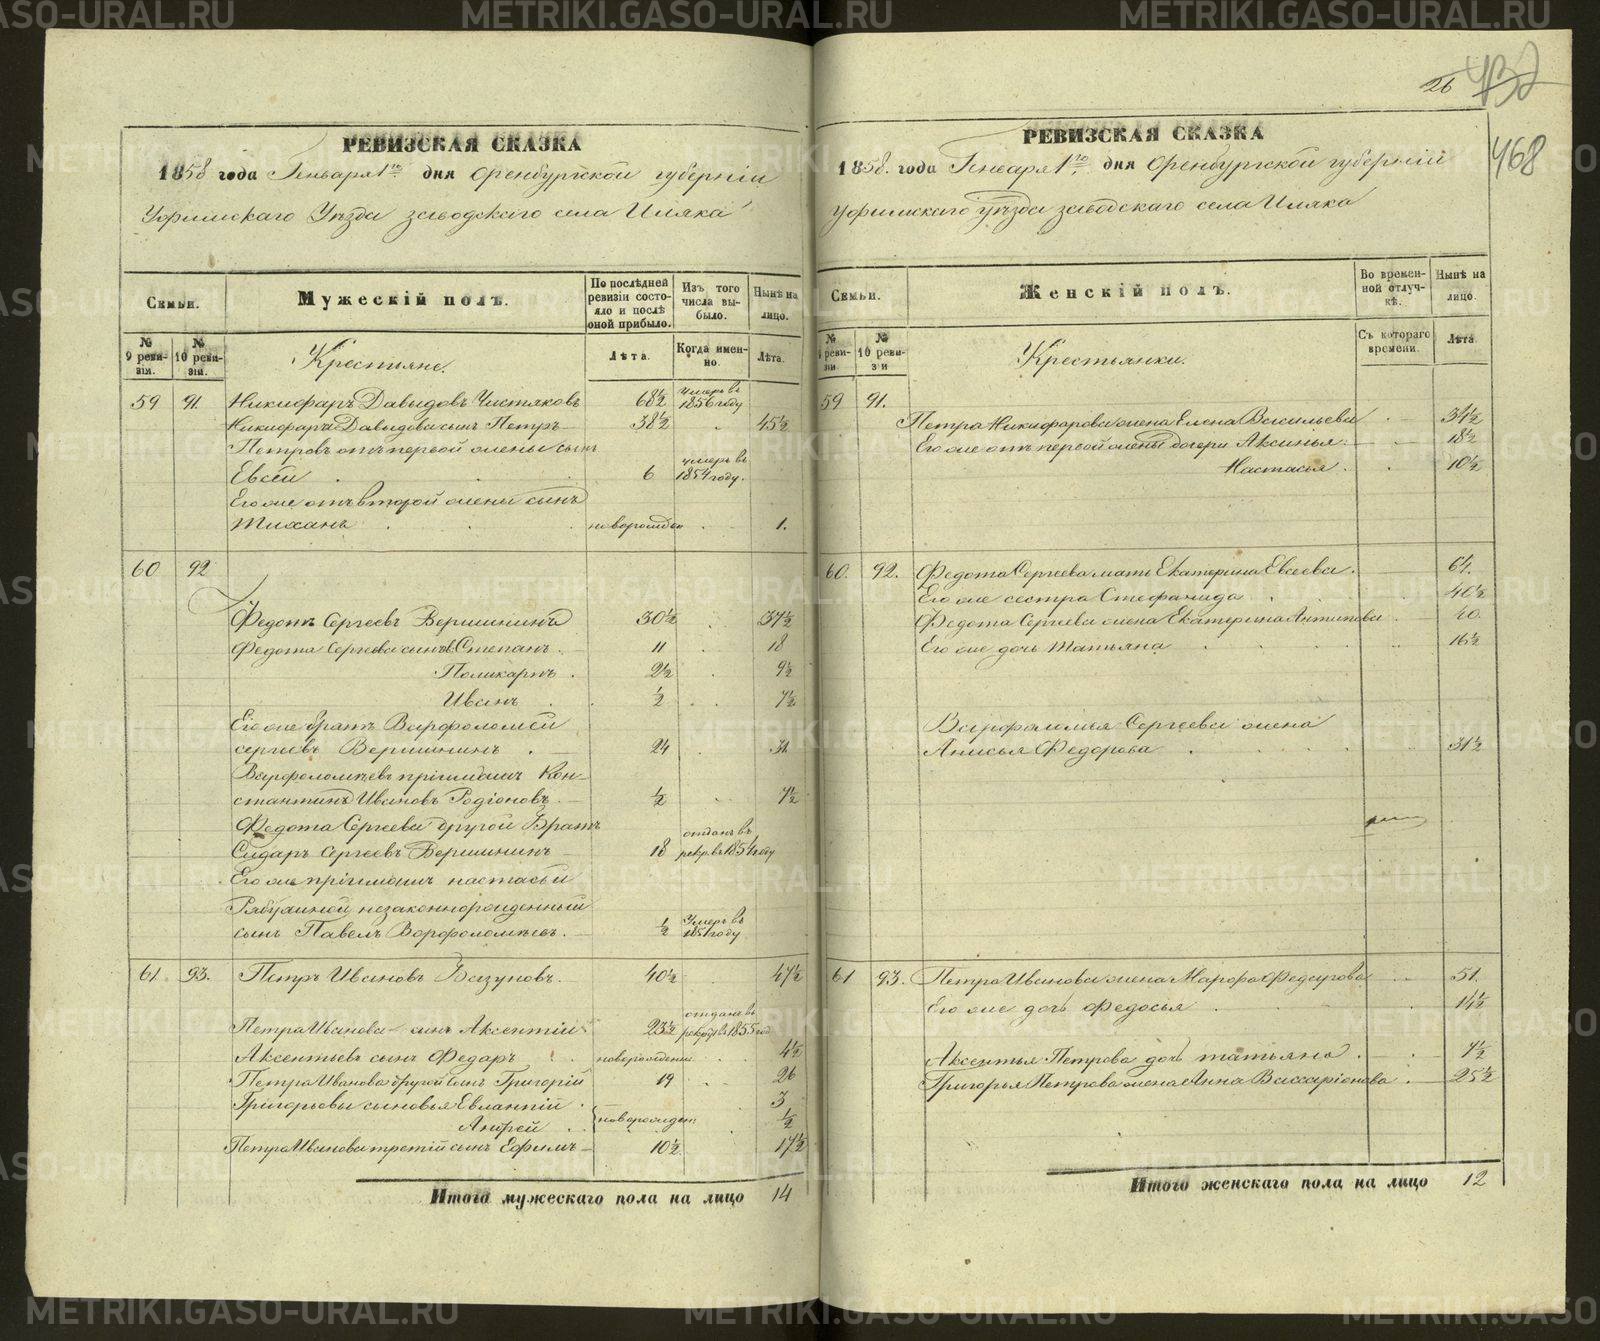 26 432
468
РЕВИЗСКАЯ СКАЗКА
1858 года Генваря 1го дня Оренбургской губерніи
Уфимскаго Уѣзда заводскаго села Иляка
Семьи.
Мужескій полъ.
По послѣдней ревизіи состояло и послѣ оной прибыло.
Изъ того числа выбыло.
Нынѣ на лицо.
№ 9 ревизіи.
№ 10 ревизіи.
Крестьяне.
Лѣта.
Когда именно.
Лѣта.
59 91. Никифаръ Давыдовъ Чистяковъ 68½ умеръ въ 1856 году
Никифара Давыдова сынъ Петръ 38½ 45½
Петровъ отъ первой жены сынъ
Евсей 6 умеръ въ 1854 году.
Его же отъ второй жены сынъ
Тиханъ новорожден 1.
60 92
Федотъ Сергеевъ Вершининъ 30½ 37½
Федота Сергеева сынъ Степанъ 11 18
Поликарпъ. 2½ 9½
Иванъ ½ 7½
Его же братъ Варфоломей
сергеевъ Вершининъ 24 31
Варфоломѣевъ пріимышъ Кон-
стантинъ Ивановъ Родіоновъ ½ 7½
Федота Сергеева другой Братъ
Сидаръ Сергеевъ Вершининъ 18 отданъ въ рекр. въ 1854 году
Его же пріимышъ настасьи
незаконнорожденный
сынъ Павелъ Ворфоломѣевъ. ½ Умеръ въ 1851 году
61 93. Петръ Ивановъ Базуновъ. 40½ 47½
Петра Иванова сынъ Аксентій 23½ отданъ въ рекруты въ 1855 год
Аксентьевъ сынъ Федаръ новорожден 4½
Петра Иванова другой сынъ Григорій 19 26
Григорьевы сыновья Евлампій 3
Андрей новорожден: ½
Петра Иванова третій сынъ Ефимъ 10½ 17½
Итого мужескаго пола на лицо 14
РЕВИЗСКАЯ СКАЗКА
1858. года Генваря 1го дня Оренбургской губерніи
Уфимскаго уѣзда заводскаго села Иляка
Семьи.
Женскій полъ.
Во временной отлучкѣ.
Нынѣ на лицо.
№ ревизіи
№ 10 ревизи
Крестьянки.
Съ котораго времени.
Лѣта
59 91.
Петра Никифарова жена Елена Васильева 34½
Его же отъ первой жены дочери Аксинья 18½
Настасья 10½
60. 92. Федота Сергеева мать Екатерина Евсеева. 64.
Его же сестра Стефанида 40½
Федота Сергеева жена Екатерина Антипова 40
Его же дочь Татьяна 16½
Варфаламея Сергеева жена
Анисья Федорова 31½
61 93. Петра Иванова жена Марфа Федорова 51.
Его же дочь Федосья 14½
Аксентья Петрова дочь татьяна 7½
Григорья Петрова жена Анна Виссаріонова 25½
Итого женскаго пола на лицо 12
METRIKI.GASO-URAL.RU